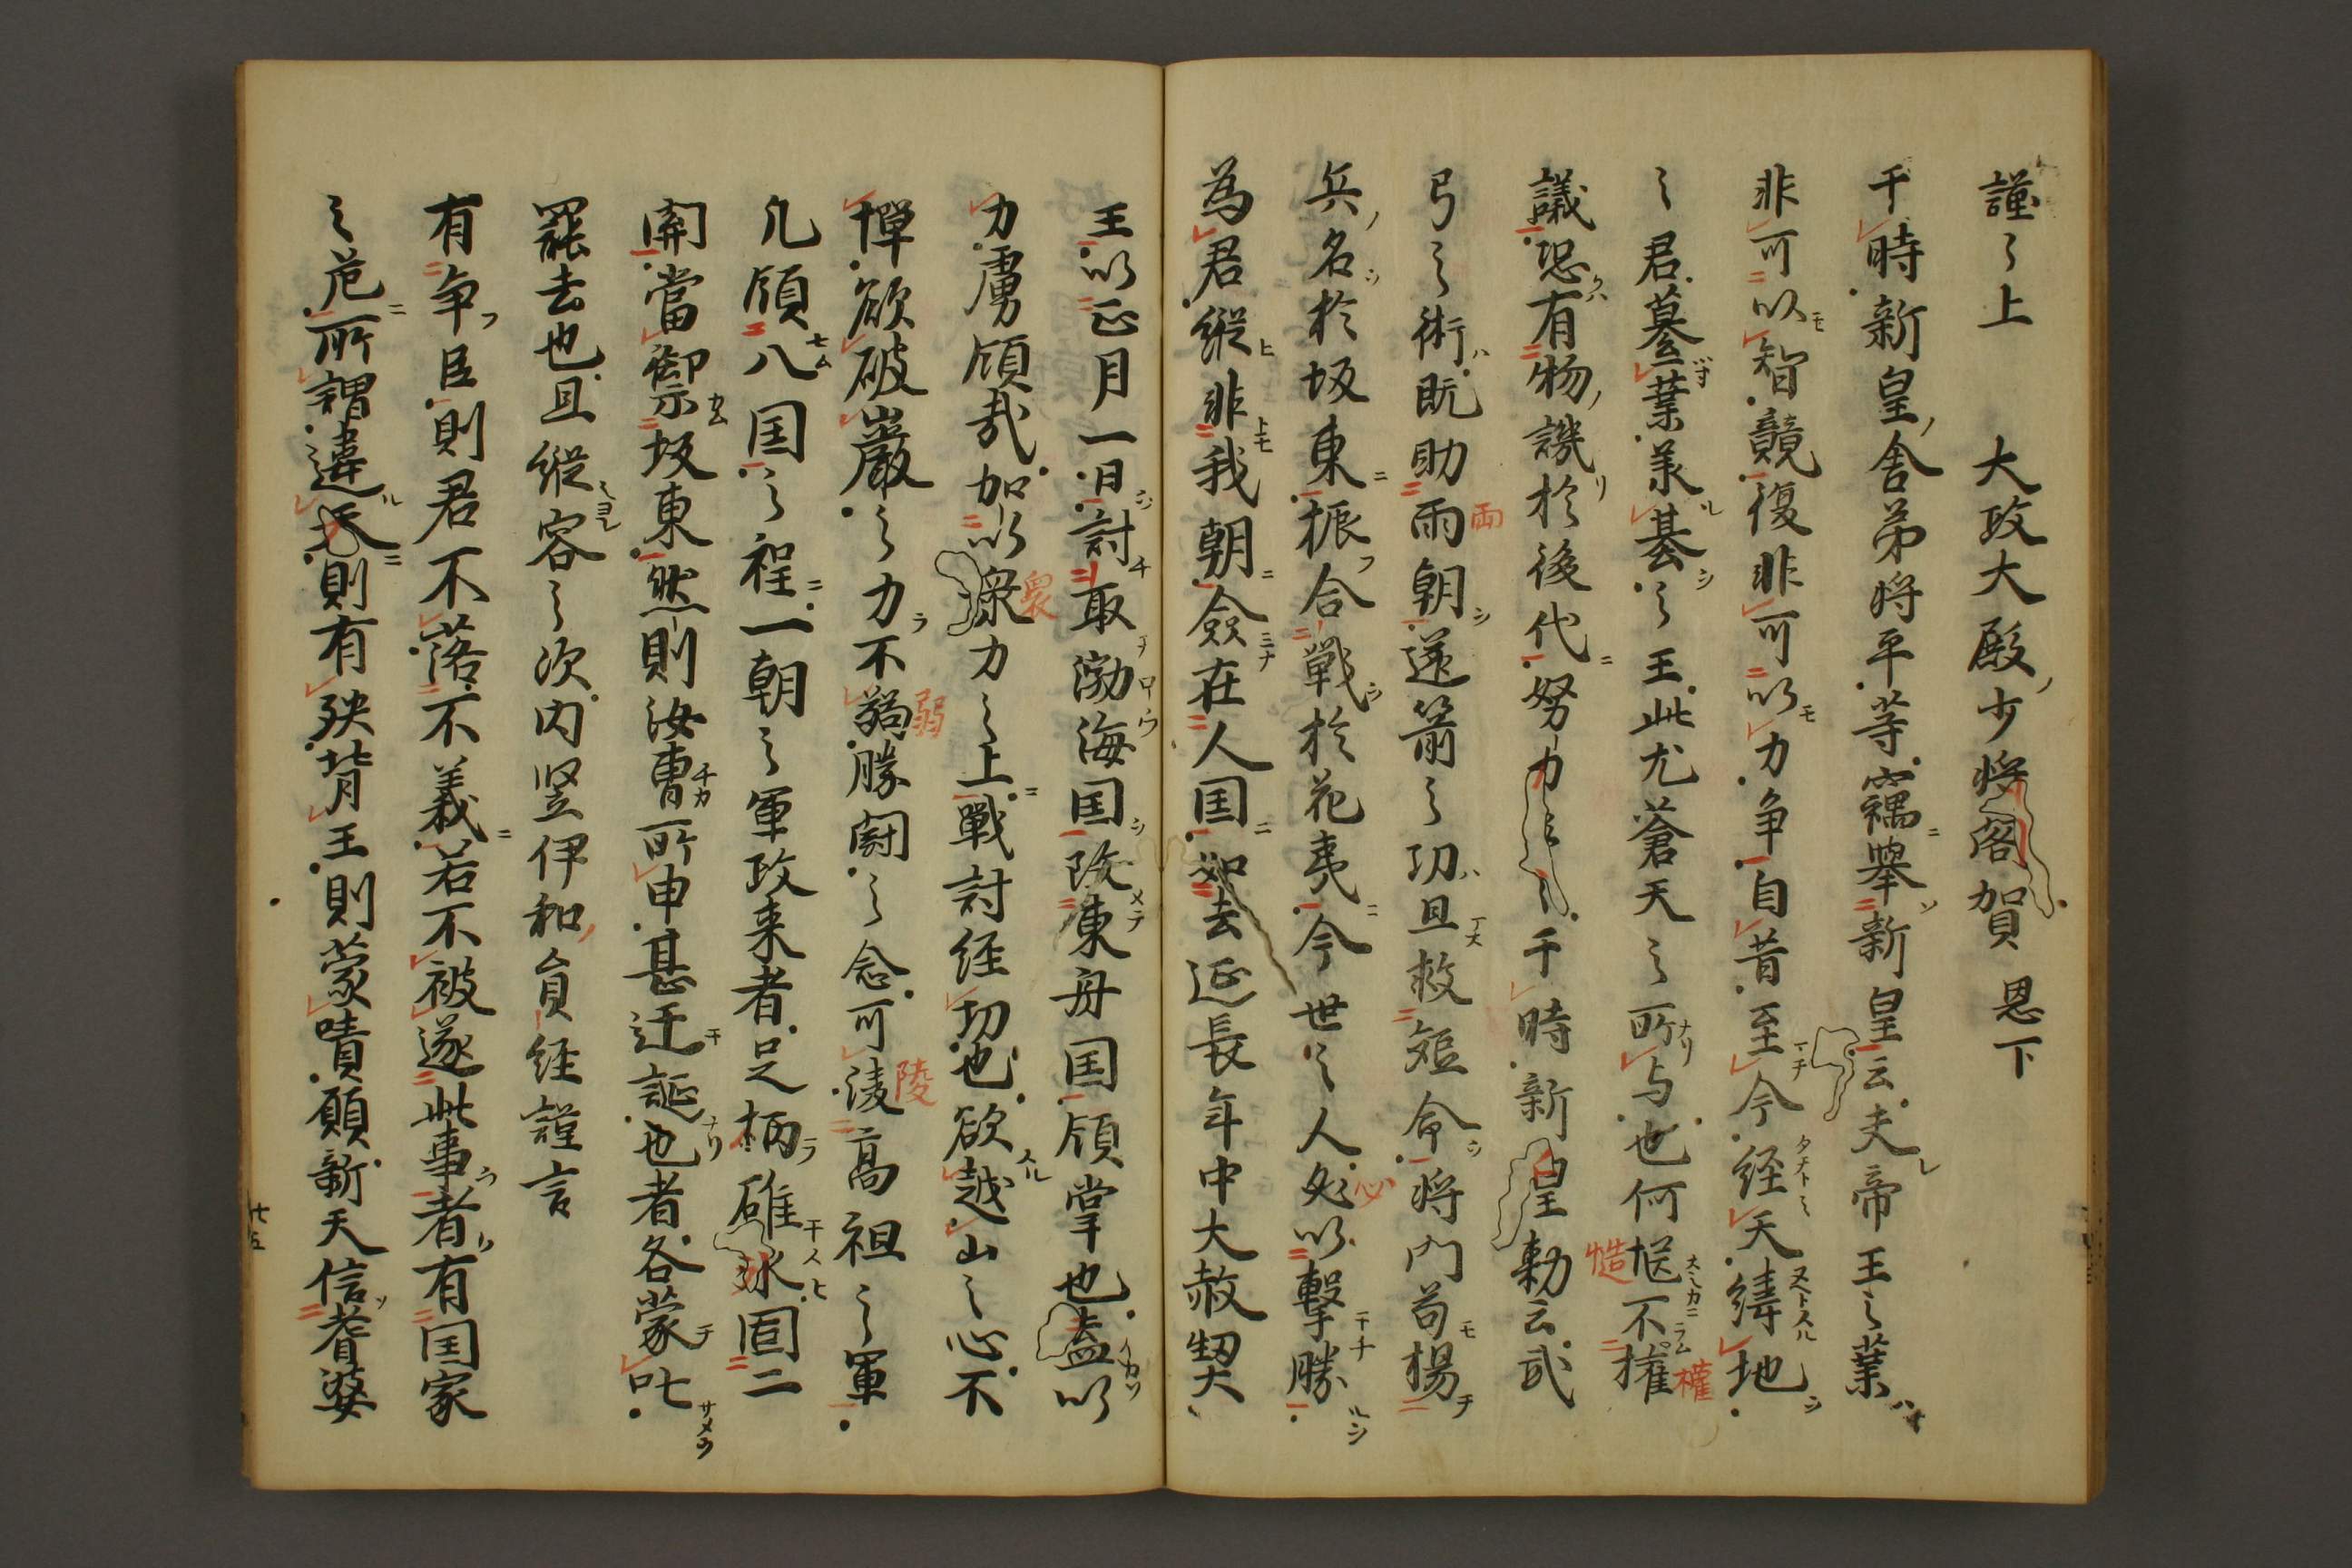 謹々上　大政大殿ノ少将閤賀　恩下
于時新皇ノ舎弟将平等竊ニ挙ソ新皇云夫レ帝王之業ハ
非可以モ智競復非可以モ力争自昔至今経天緯地シ
之君纂葉美ル基シ之王此尤蒼天之所与也何慥不権
議恐クハ有物ノ譏リ於後代ニ努力々々于時新皇勅云武
弓之術ハ既助両朝シ還箭之功ハ且救短命シ将門苟モ揚チ
兵ノ名シ於坂東ニ振フ合戦ウ於花夷ニ今世之人必以撃勝ルシ
為君縦ヒ非我朝ニ僉ミナ在人国ニ如去延長年中大赦契
王以正月一日討チ取渤海国シ改メテ東舟国領掌也盍以
力虜領哉加以衆力之上ニ戦討経功也欲越山之心不
憚欲破巌之力ラ不弱勝闘之念可凌高祖之軍
凡領八国之程ニ一朝之軍攻来者足柄ラ碓氷固二
関当御坂東然則汝曹所申甚迂誕也者各蒙チ叱
罷去也且縦容之次内竪伊和ノ員経謹言
有争フ臣則君不落不義ニ若不被遂此事ウ者有国家
之危ニ所謂違ル天ニ則有殃背王則蒙嘖願新天信ソ耆婆
七五
両
必
慥
権
衆
弱
陵